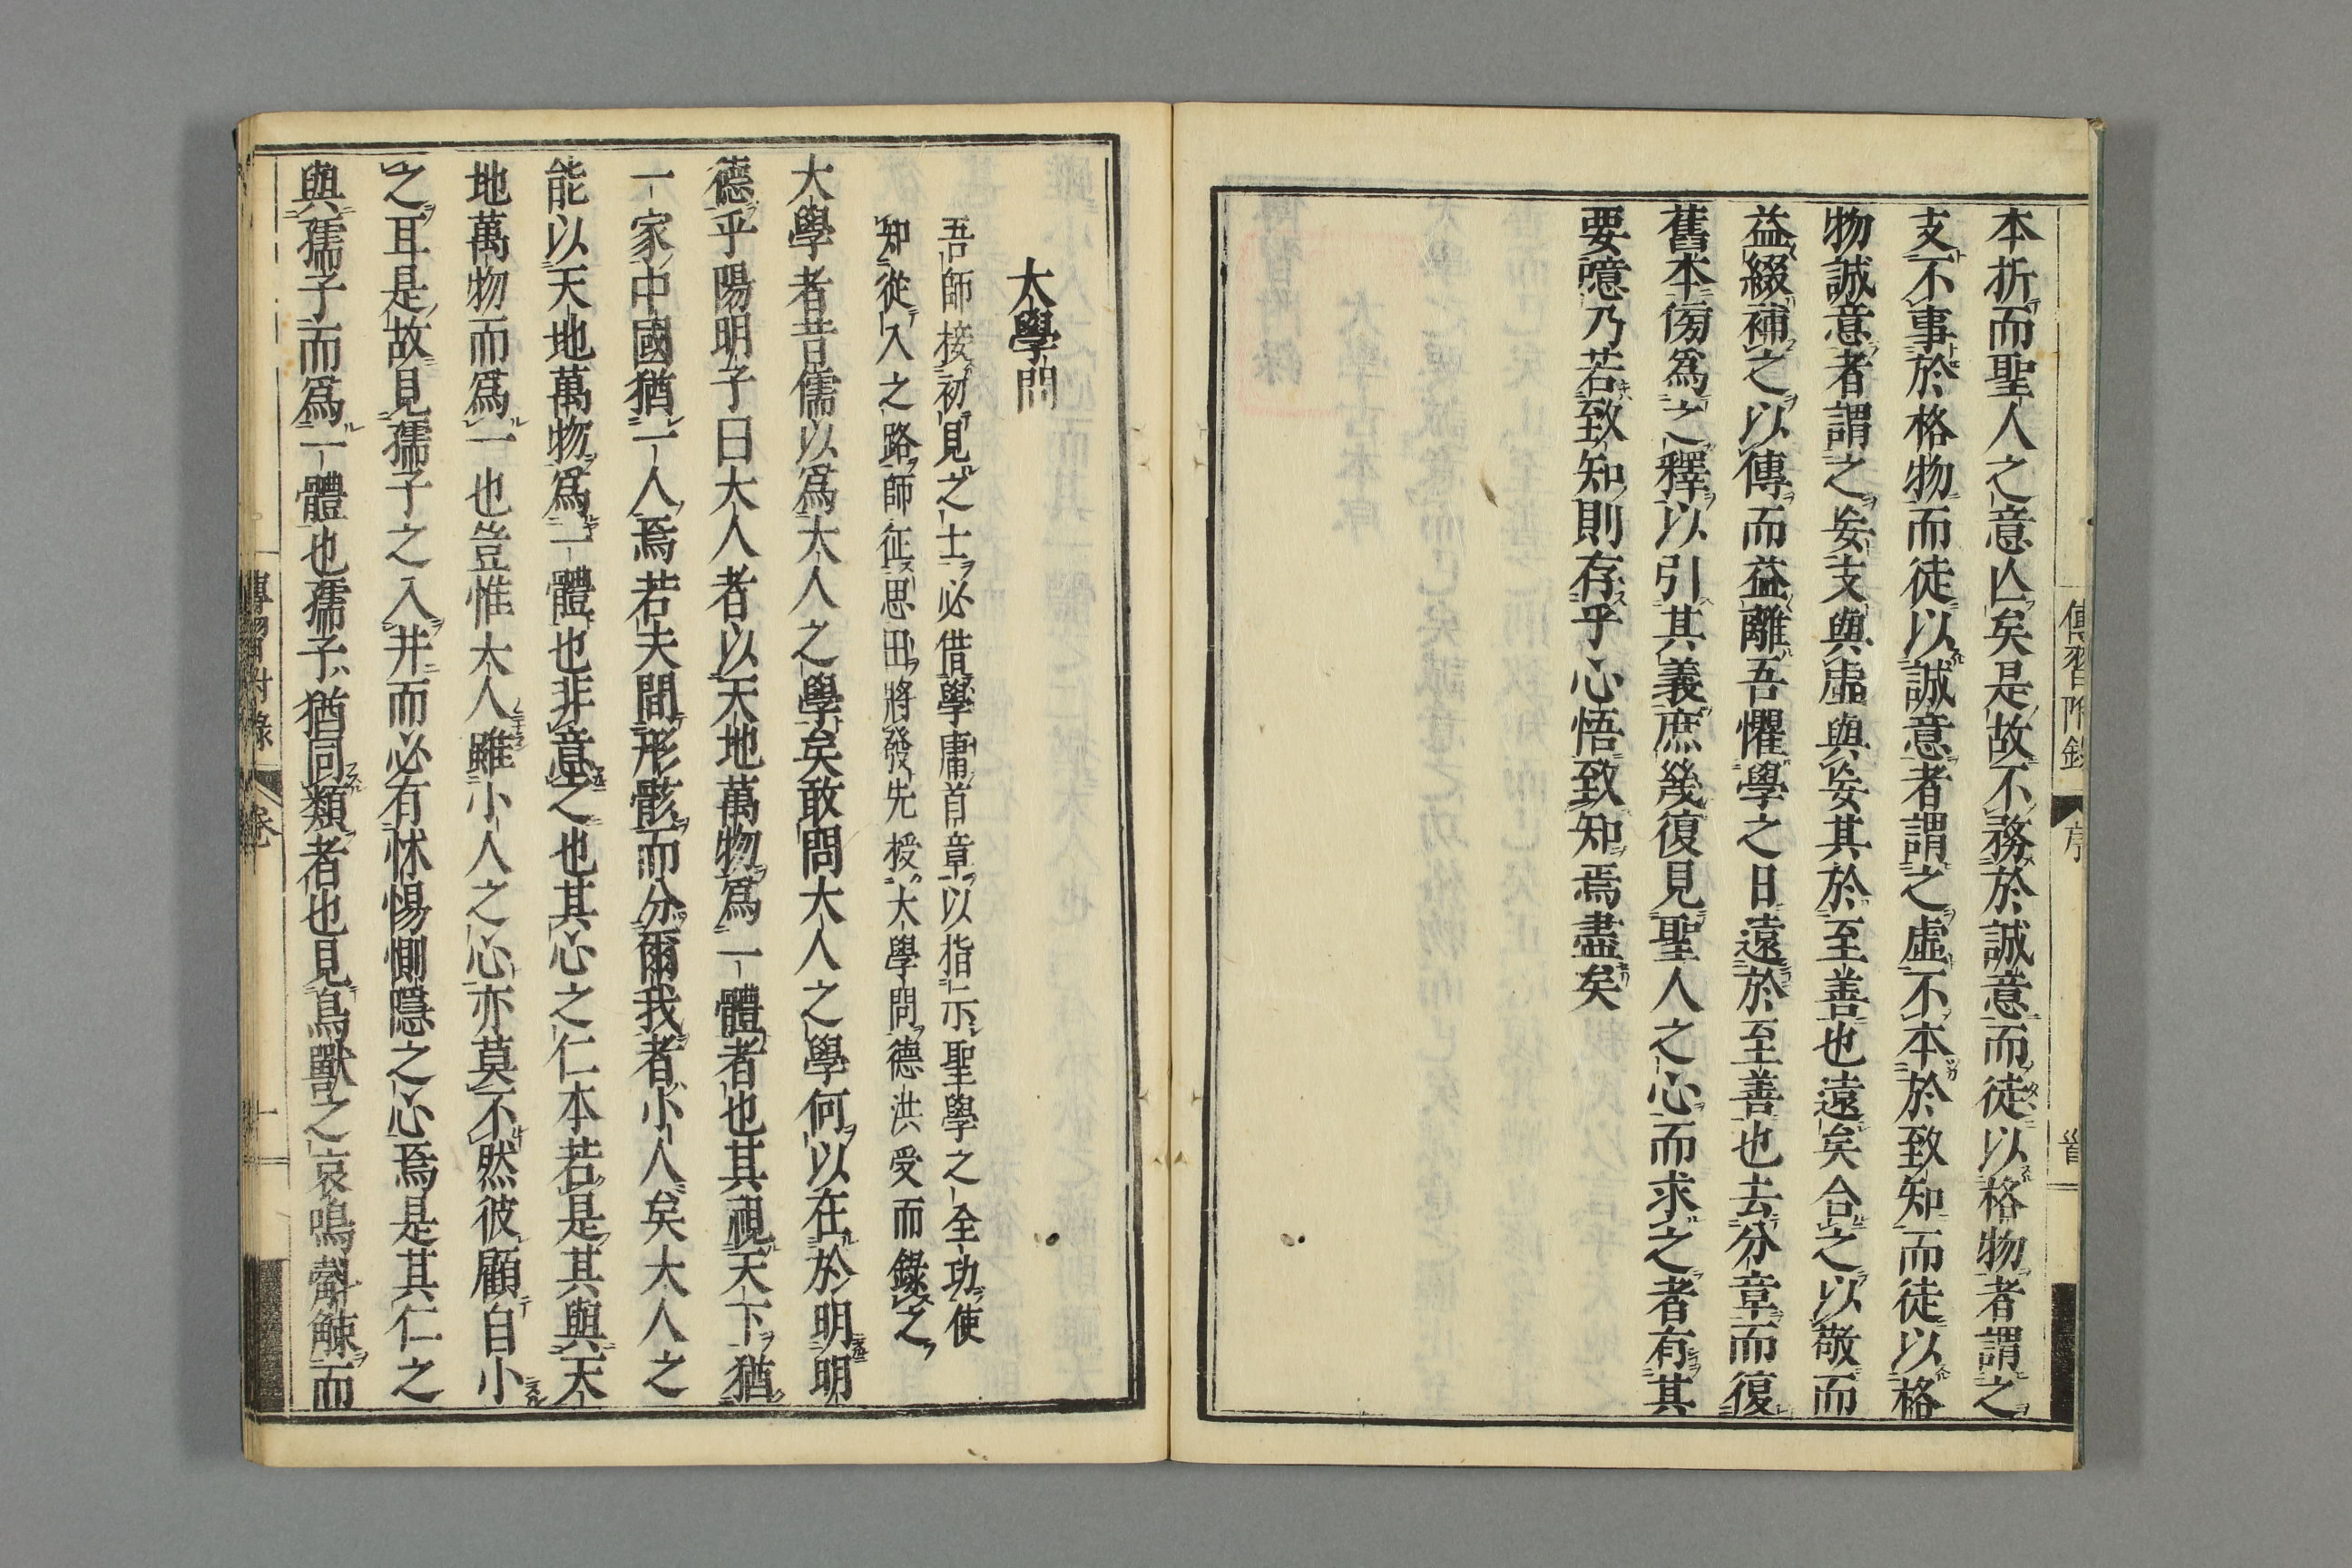 本折而聖人之意亾矣是故不務於誠意而徒以格物者謂之
支不事於格物而徒以誠意者謂之虛不本於致知而徒以格
物誠意者謂之妄支與虛與妄其於至善也遠矣合之以敬而
益綴補之以傳而益離吾懼學之日遠於至善也去分章而復
舊本傍爲之釋以引其義庶幾復見聖人之心而求之者有其
要噫乃若致知則存乎心悟致知焉盡矣
傳習附錄
序
大學問
吾師接初見之士必借學庸首章以指示聖學之全功使
知從入之路師征思田將發先授大學問德洪受而錄之
大學者昔儒以爲大人之學矣敢問大人之學何以在於明明
德乎陽明子曰大人者以天地萬物爲一體者也其視天下猶
一家中國猶一人焉若夫間形骸而分爾我者小人矣大人之
能以天地萬物爲一體也非意之也其心之仁本若是其與天
地萬物而爲一也豈惟大人雖小人之心亦莫不然彼顧自小
之耳是故見孺子之入井而必有怵惕惻隱之心焉是其仁之
與孺子而爲一體也孺子猶同類者也見鳥獸之哀鳴觳觫而
傳習附錄
卷
一